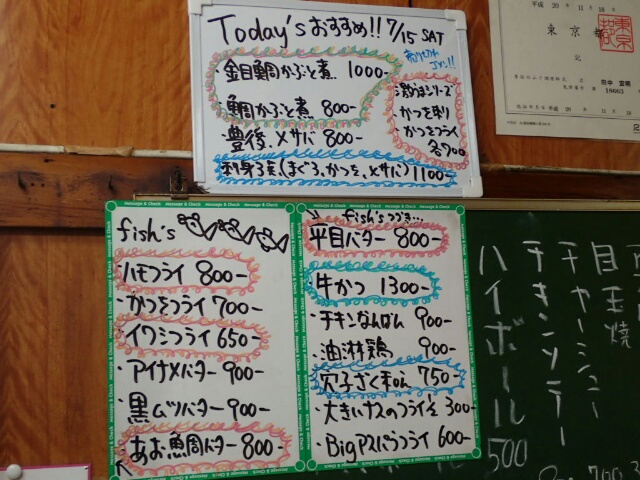 Today'sおすすめ!! 7/15 SAT
・金目鯛かぶと煮 1000-
鯛かぶと煮 800-
・豊後〆サバ 800-
刺身3点(まぐろ、かつを、〆サバ) 1100-
・激うまシリーズ
・かつを刺り
・かつをフライ
各700
平成 20年 11月 18
東京都
fish's
・ハモフライ 800-
・かつをフライ 700-
・イワシフライ 650-
・アイナメバター 900-
・黒ムツバター 900-
・あお魚周バター 800-
fish'sつづき…
平目バター 800-
・牛かつ 1300-
・チキンなんばん 900-
・油淋鶏 900-
・穴子ざくきゅう 750-
・大きいナスのフライ½ 300-
・Bigアスパラフライ 600-
Message & Check
目玉焼
チャーシュー
チキンソテー
ハイボール 500